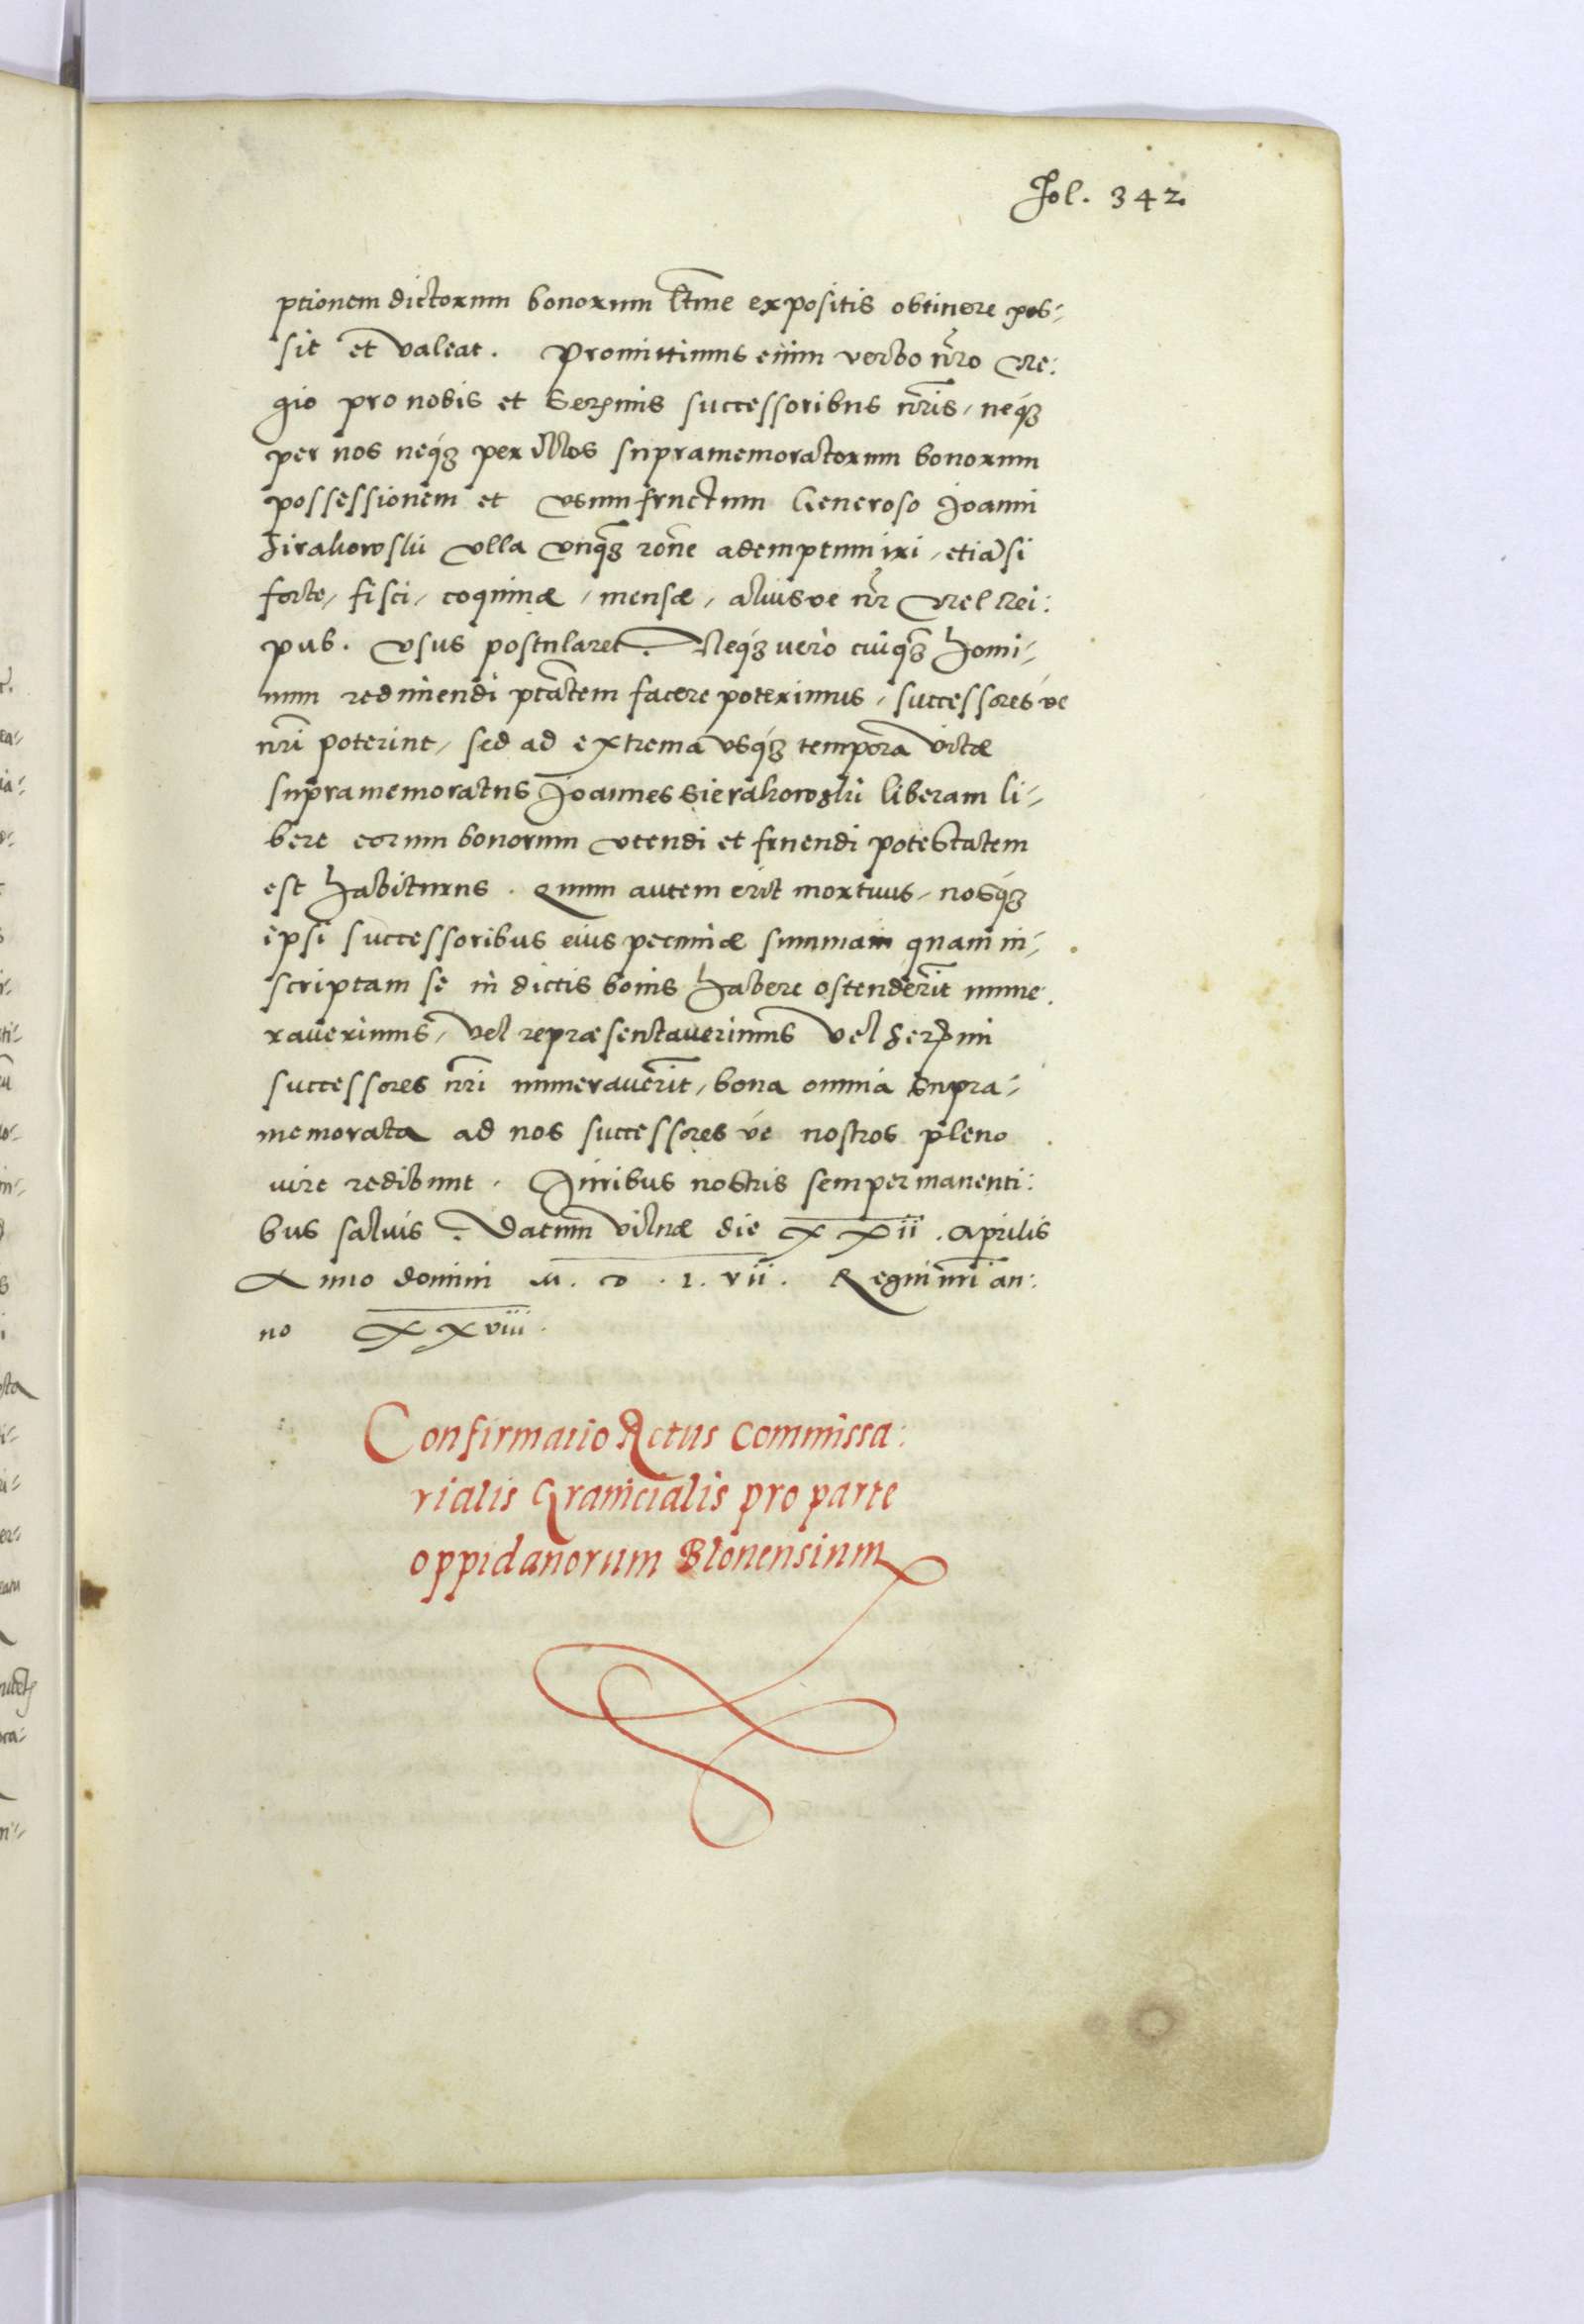 Fol. 342.
ptionem dictorum bonorum ltīme expositis obtinere pos-
sit et valeat. Promittimus enim verbo nr̄o Re:
gio pro nobis et Serꝫmis successoribus nr̄is, neqꝫ
per nos neqꝫ per illos supramemoratorum bonorum
possessionem et vsumfructum Generoso Joanni
Sirakowski vlla vnqꝫ rōne ademptum iri, etiāsi
forte, fisci, coquinæ, mensæ, aliusve nr̄ vel Rei:
pub. vsus postularet. Neqꝫ vero cuiqꝫ homi-
num redimendi ptātem facere poterimus, successores ve
nr̄i poterint, sed ad extrema vsqꝫ tempora vitæ
supramemoratus Joannes Sierakowski liberam li-
bere eorum bonorum vtendi et fruendi potestatem
est habiturus. Quum autem erit mortuus, nosqꝫ
ipsi successoribus eius pecuniæ summam quam in-
scriptam se in dictis bonis habere ostenderīt nume.
raverimus, vel repræsentaverimus vel Serꝫmi
successores nr̄i numeraverīt, bona omnia supra-
memorata ad nos successores ve nostros pleno
iure redibunt. Juribus nostris semper manenti:
bus salvis. Datum Vilnæ die XXii. Aprilis
Anno domini M. D. L. vii. Regni nr̄i an:
no XXviii.
Confirmatio Actus Commissa:
rialis Granicialis pro parte
oppidanorum Blonensium